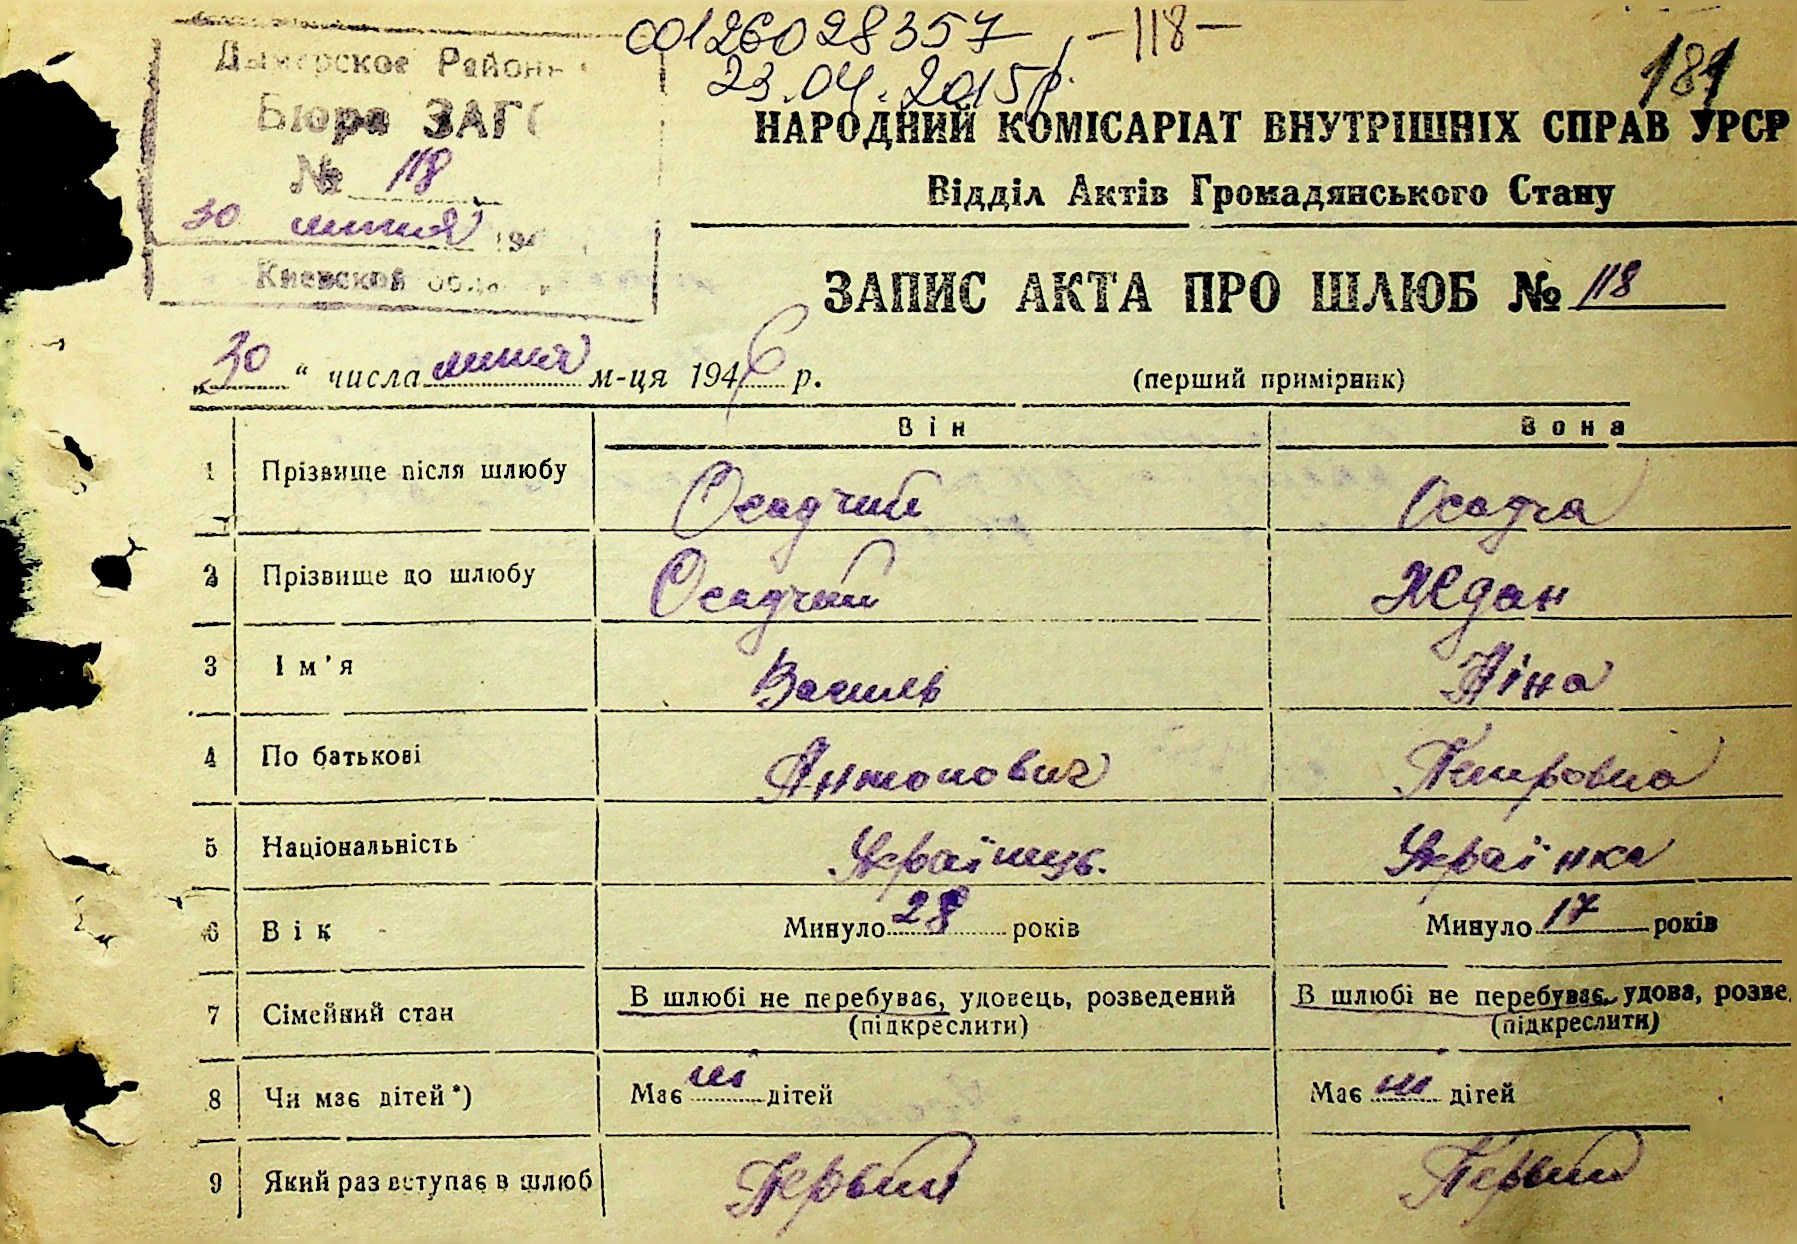 00126028357 -118-
23.04.2015р.
181
Дымерское Район
Бюро ЗАГС
№ 118
30 липня 194
Киевской обл
НАРОДНИЙ КОМІСАРІАТ ВНУТРІШНІХ СПРАВ УРСР
Відділ Актів Громадянського Стану
ЗАПИС АКТА ПРО ШЛЮБ № 118
„30“ числа липня м-ця 1946 р.
(перший примірник)
Він Вона
1 Прізвище після шлюбу Осадчий Осадча
2 Прізвище до шлюбу Осадчий Ждан
3 Ім'я Василь Ніна
4 По батькові Антонович Петровна
5 Національність Українець. Українка
6 Вік Минуло 28 років Минуло 17 років
7 Сімейний стан В шлюбі не перебуває, удовець, розведений В шлюбі не перебуває, удова, розве
(підкреслити) (підкреслити)
8 Чи має дітей *) Має ні дітей Має ні дітей
9 Який раз вступає в шлюб Первый Первый